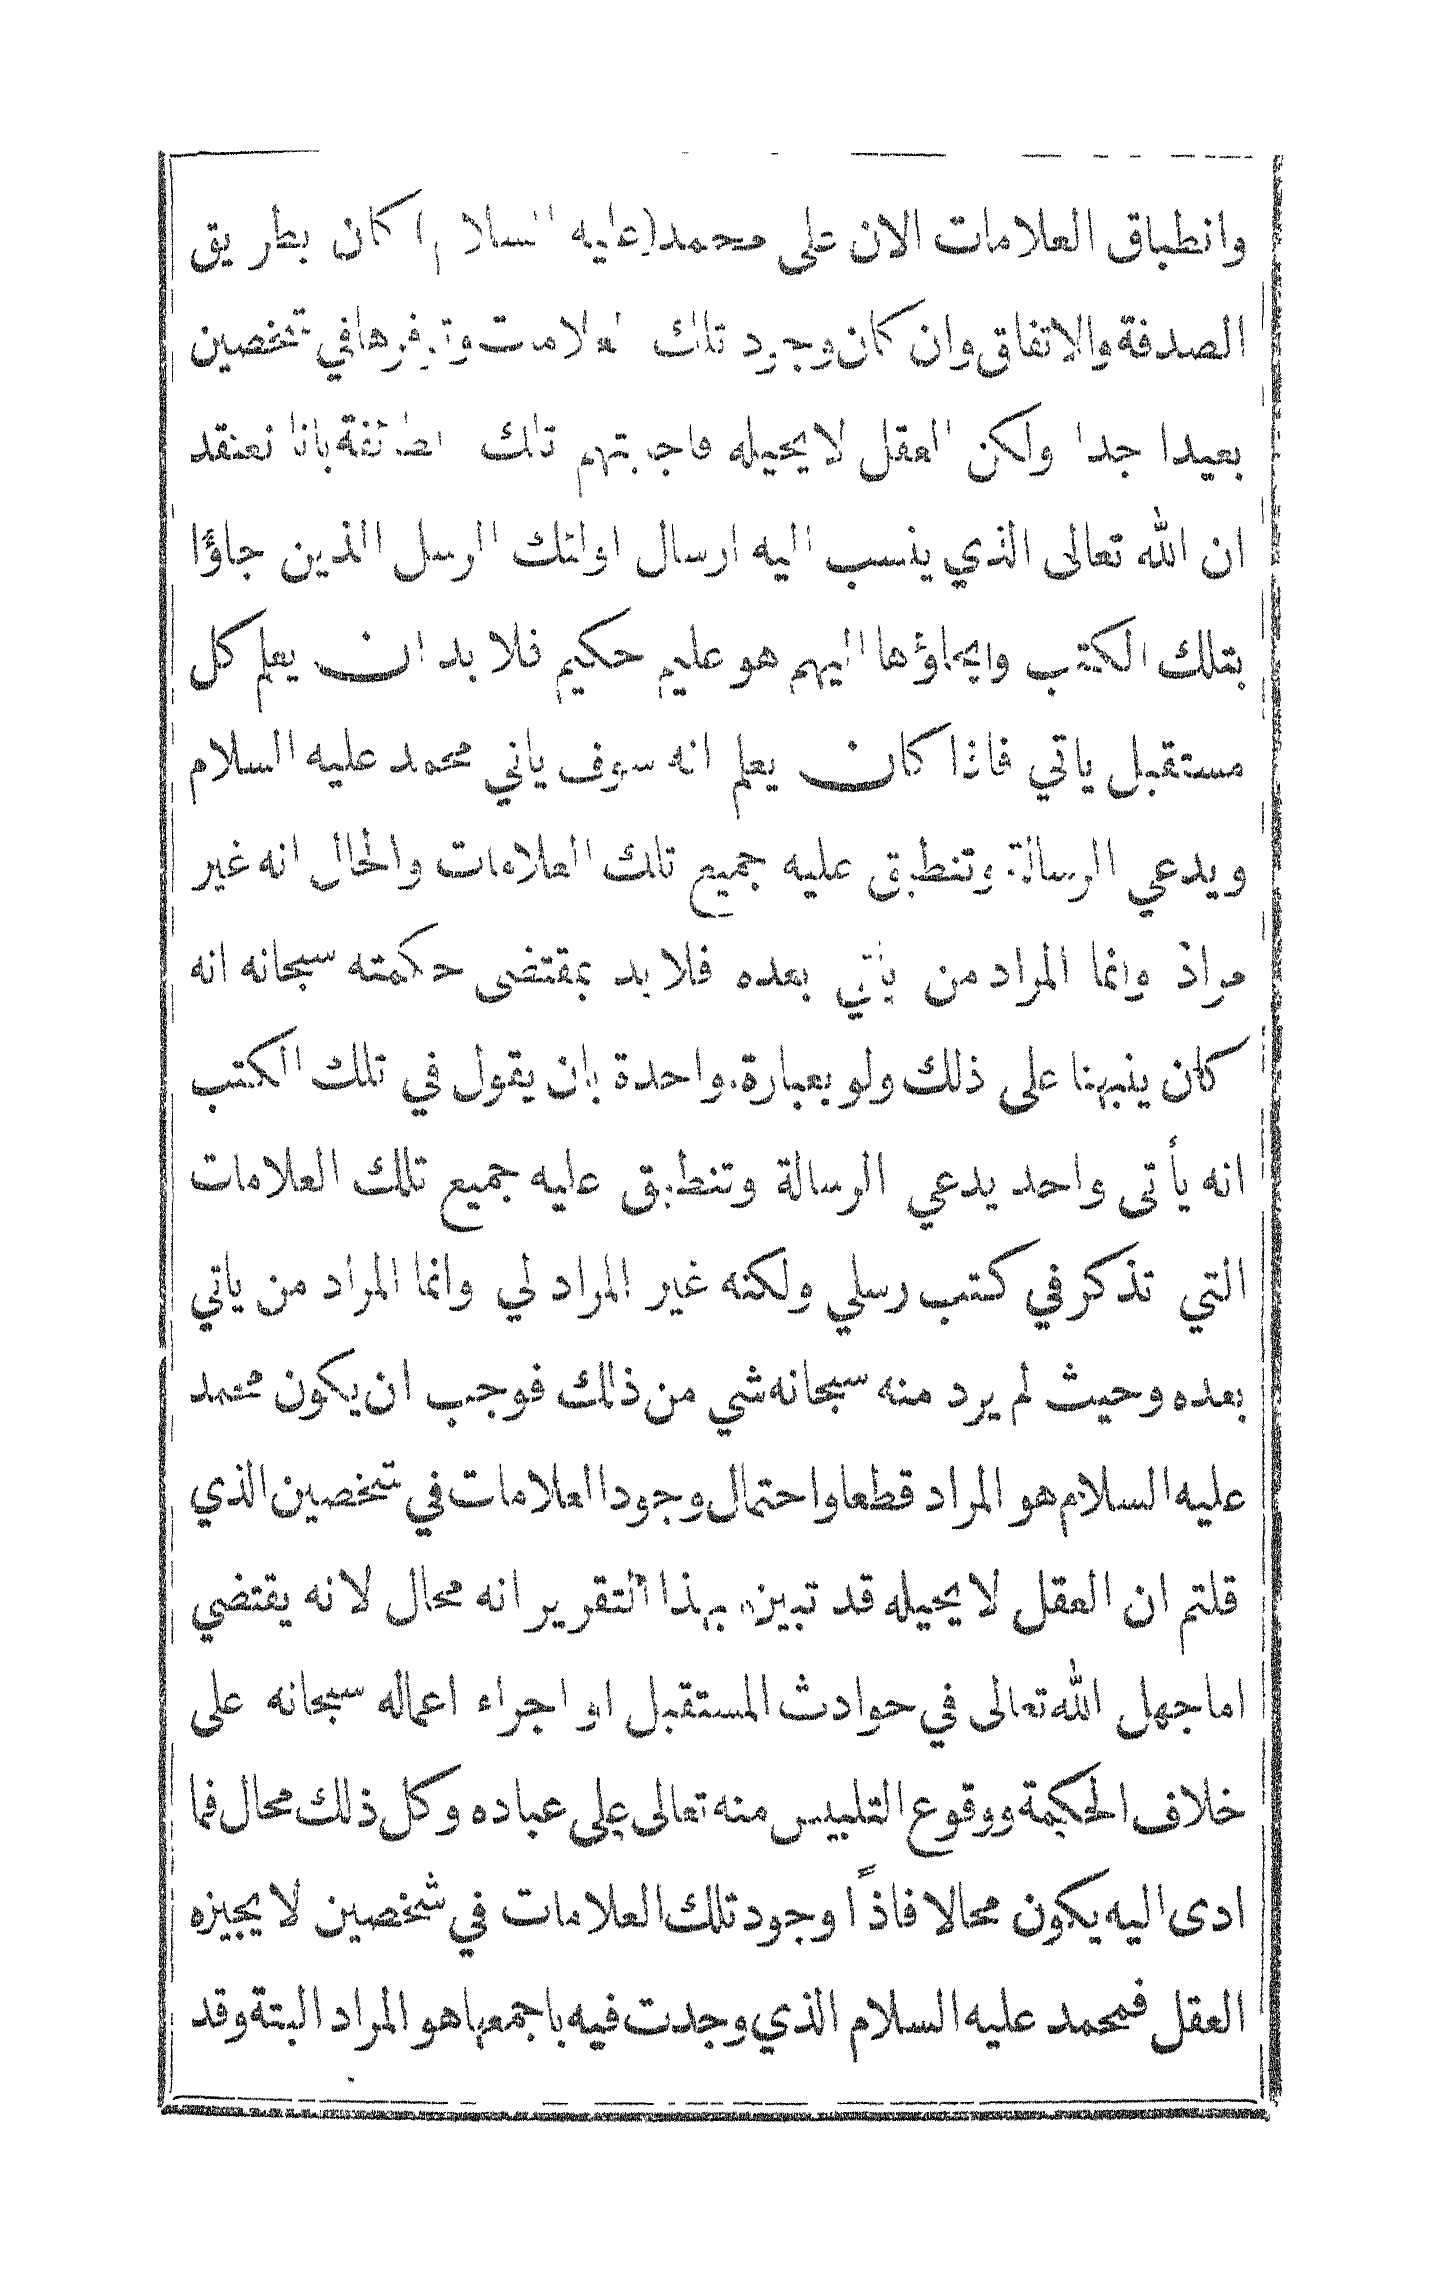 وانطباق العلامات الان على محمد (عليه السلام) كان بطريق
الصدفة والاتفاق وان كان وجود تلك العلامات وتوفرها في شخصين
بعيدا جدا ولكن العقل لا يحيله فاجابتهم تلك الطائفة باننا نعتقد
ان الله تعالى الذي ينسب اليه ارسال اولئك الرسل الذين جاؤا
بتلك الكتب وايحاؤها اليهم هو عليم حكيم فلا بد ان يعلم كل
مستقبل ياتي فاذا كان يعلم انه سوف ياتي محمد عليه السلام
ويدعي الرسالة وتنطبق عليه جميع تلك العلامات والحال انه غير
مراد وانما المراد من يأتي بعده فلا بد بمقتضى حكمته سبحانه انه
كان ينبهنا على ذلك ولو بعبارة واحدة بان يقول في تلك الكتب
انه يأتى واحد يدعي الرسالة وتنطبق عليه جميع تلك العلامات
التي تذكر في كتب رسلي ولكنه غير المراد لي وانما المراد من ياتي
بعده وحيث لم يرد منه سبحانه شي من ذلك فوجب ان يكون محمد
عليه السلام هو المراد قطعا واحتمال وجود العلامات في شخصين الذي
قلتم ان العقل لا يحيله قد تبين بهذا التقرير انه محال لانه يقتضي
اما جهل الله تعالى في حوادث المستقبل او اجراء اعماله سبحانه على
خلاف الحكمة ووقوع التلبيس منه تعالى على عباده وكل ذلك محال فما
ادى اليه يكون محالا فاذًا وجود تلك العلامات في شخصين لا يجيزه
العقل فمحمد عليه السلام الذي وجدت فيه باجمعها هو المراد البتة وقد